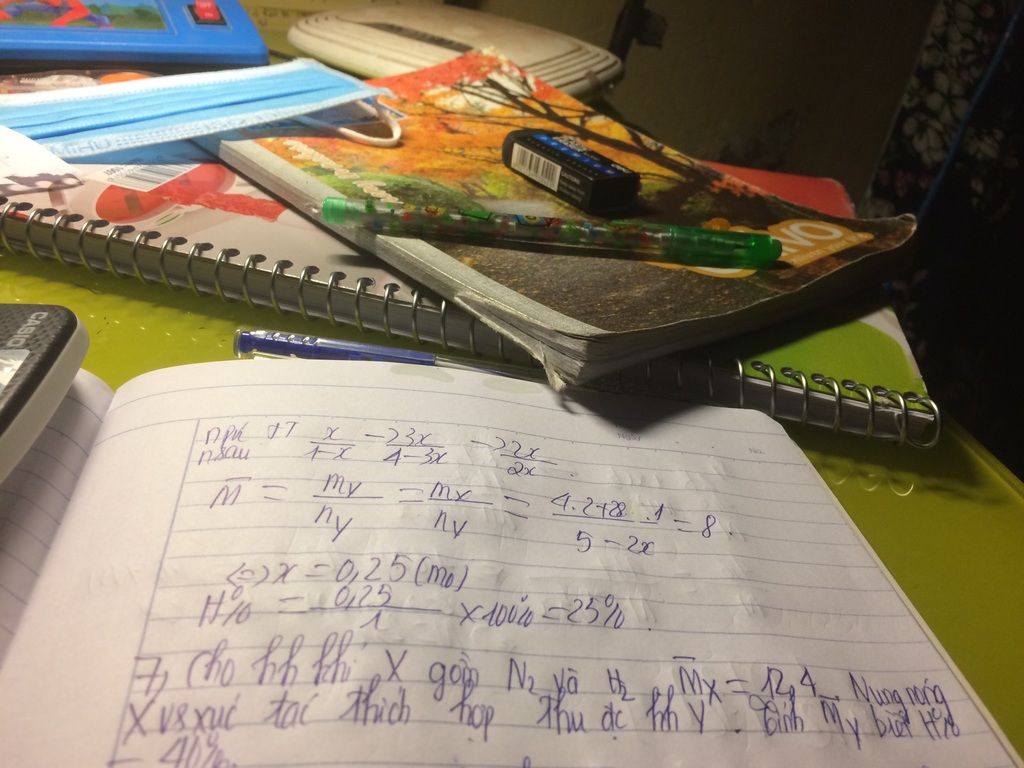 CASIO
AVO
npứ
nsau
x/1-x → 3x/4-3x → 2x/2x
M̄ = mY/nY = mX/nY = 4.2+28.1/5-2x = 8.
<=> x = 0,25 (mo)
H% = 0,25/1 x 100% = 25%.
7, Cho hh khí X gồm N2 và H2 M̄X = 12,4. Nung nóng
X vs xúc tác thích hợp thu đc hh Y. Tính M̄Y biết H%
= 40%.